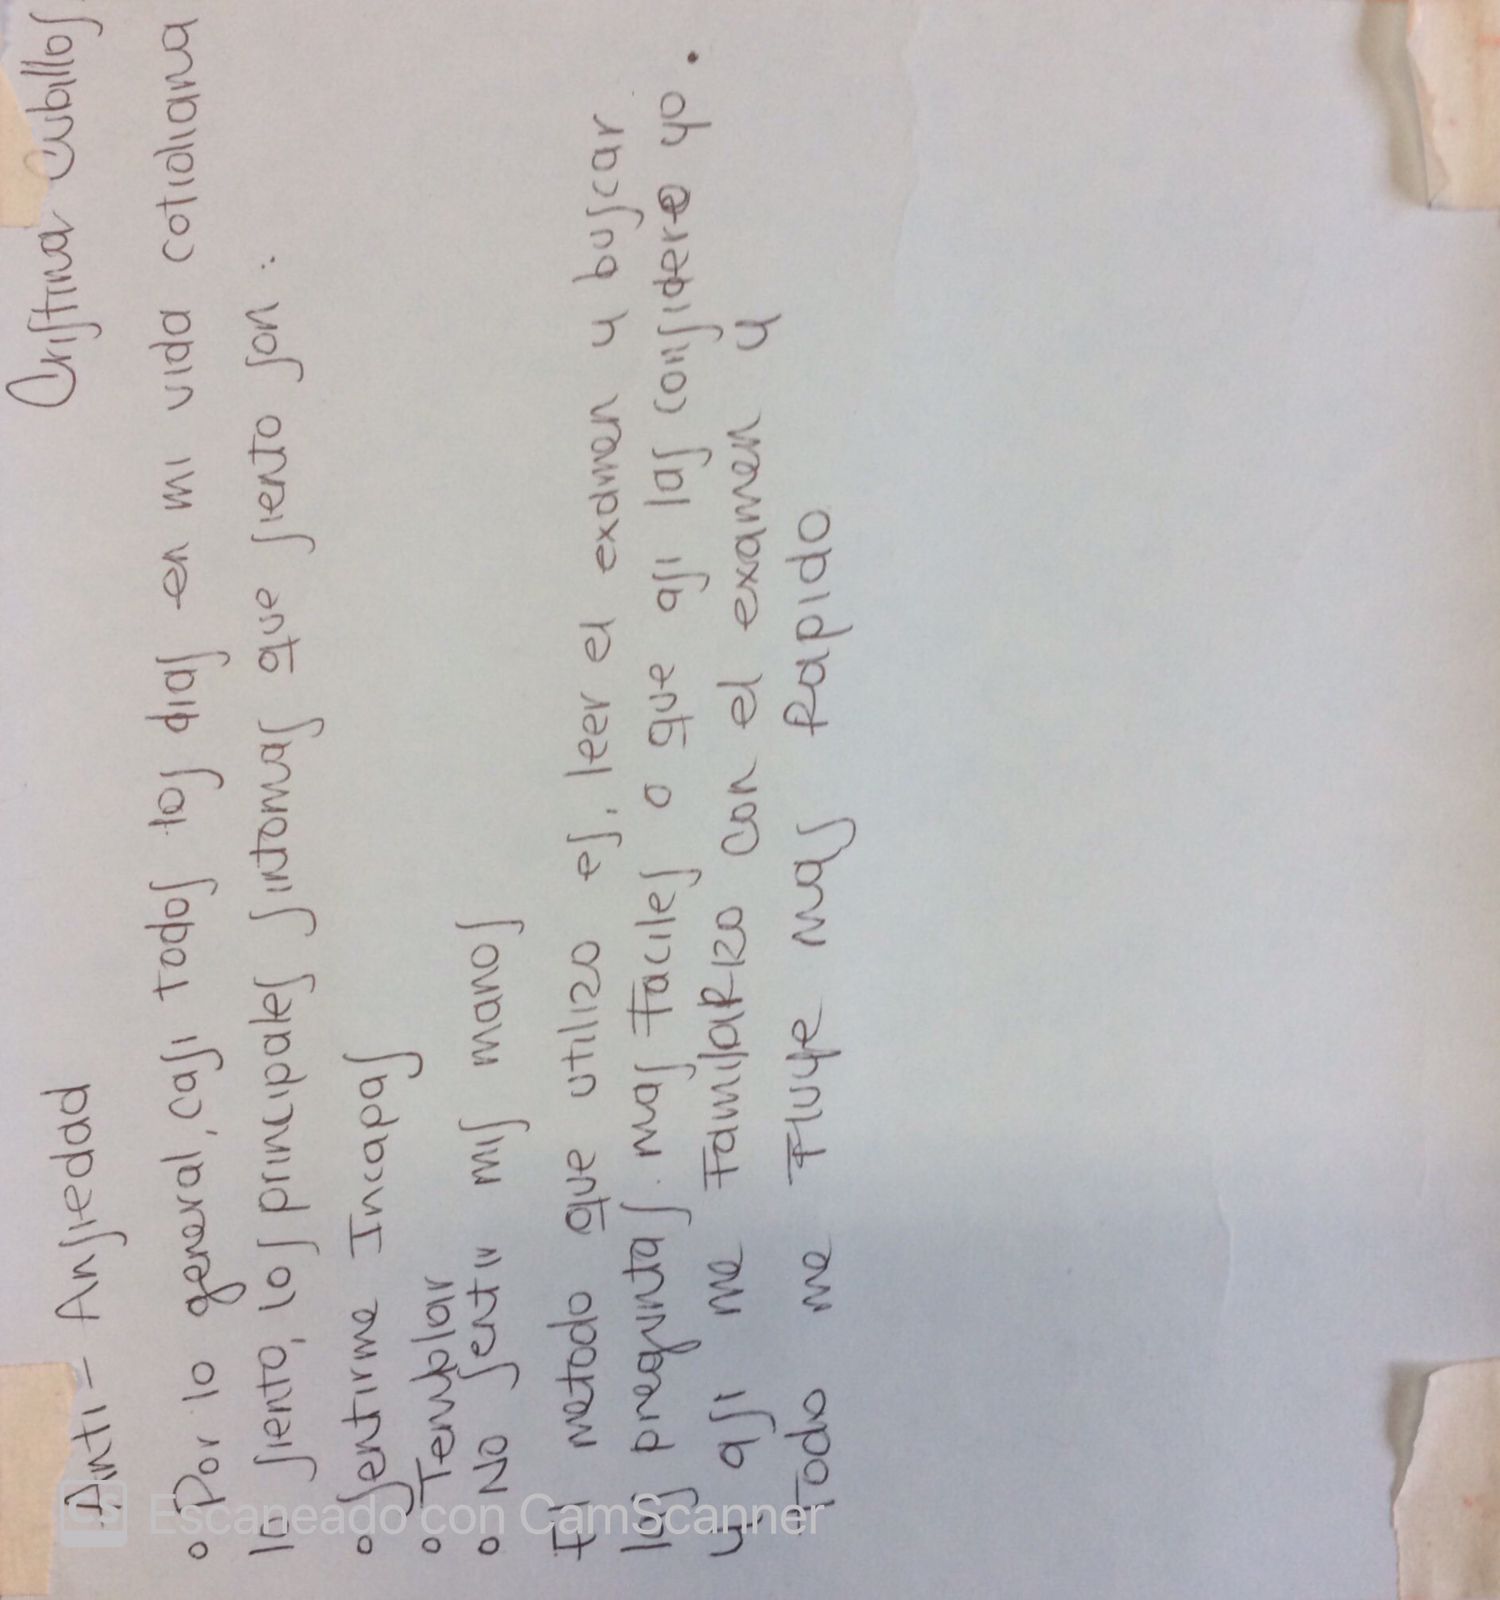 Anti - Ansiedad
Cristina Cubillos
Por lo general, casi todos los dias en mi vida cotidiana
lo siento, los principales sintomas que siento son :
Sentirme Incapas
Temblar
No sentir mis manos
El metodo que utilizo es, leer el examen y buscar
las preguntas mas faciles o que asi las considere yo.
y asi me FamilaRizo con el examen y
Todo me Fluye mas Rapido
CS Escaneado con CamScanner